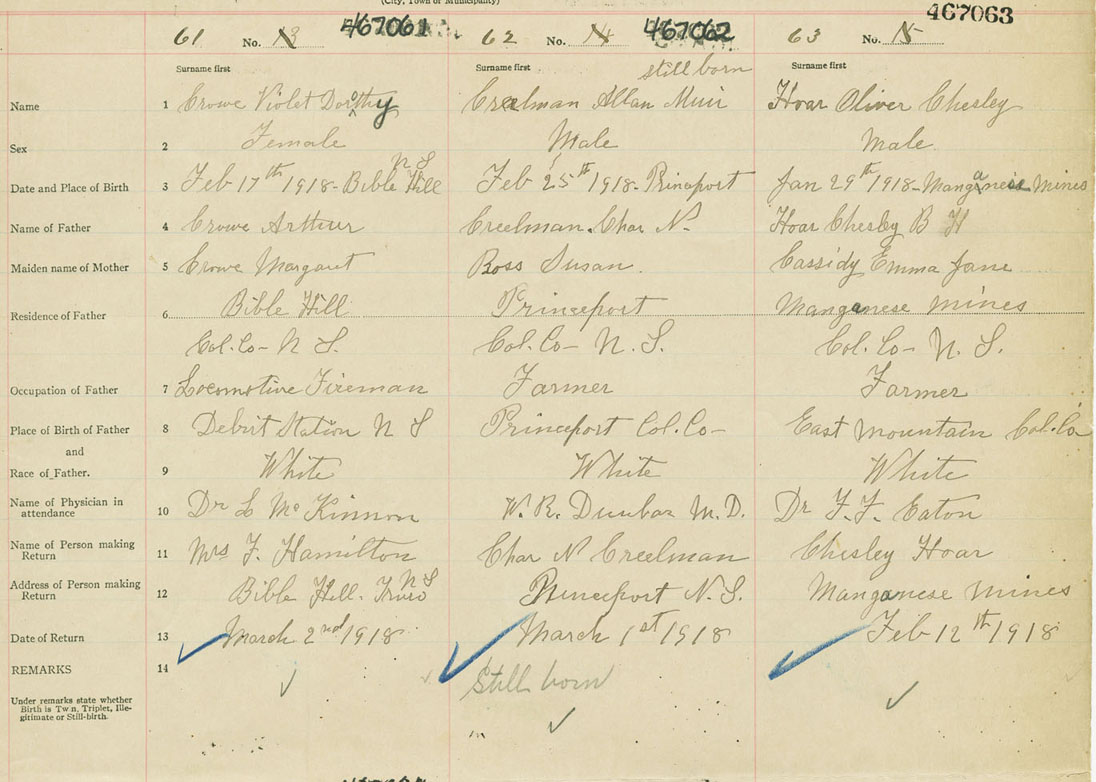 (City, Town or Municipality)
61 No. 13 467061 62 No. 14 467062 63 No. 15 467063
Surname first Surname first still born Surname first
Name 1 Crowe Violet Dorothy Creelman Allan Muir Hoar Oliver Chesley
Sex 2 Female Male Male
N S
Date and Place of Birth 3 Feb 17th 1918 - Bible Hill Feb 25th 1918 - Princeport Jan 29th 1918 - Manganese Mines
Name of Father 4 Crowe Arthur Creelman. Char N. Hoar Chesley B H
Maiden name of Mother 5 Crowe Margaret Ross Susan. Cassidy Emma Jane
Residence of Father 6 Bible Hill Princeport Manganese Mines
Col. Co - N S. Col. Co - N. S. Col. Co - N. S.
Occupation of Father 7 Locomotive Fireman Farmer Farmer
Place of Birth of Father 8 Debert Station N S Princeport Col. Co - East Mountain Col. Co
and
Race of Father. 9 White White White
Name of Physician in attendance 10 Dr L Mc Kinnon W. R. Dunbar M. D. Dr F. F. Eaton
Name of Person making Return 11 Mrs F. Hamilton Char N Creelman Chesley Hoar
Address of Person making Return 12 Bible Hill. Truro N S Princeport N. S. Manganese Mines
Date of Return 13 March 2nd 1918 March 1st 1918 Feb 12th 1918
REMARKS 14 Still born
Under remarks state whether
Birth is Twin, Triplet, Ille-
gitimate or Still-birth.